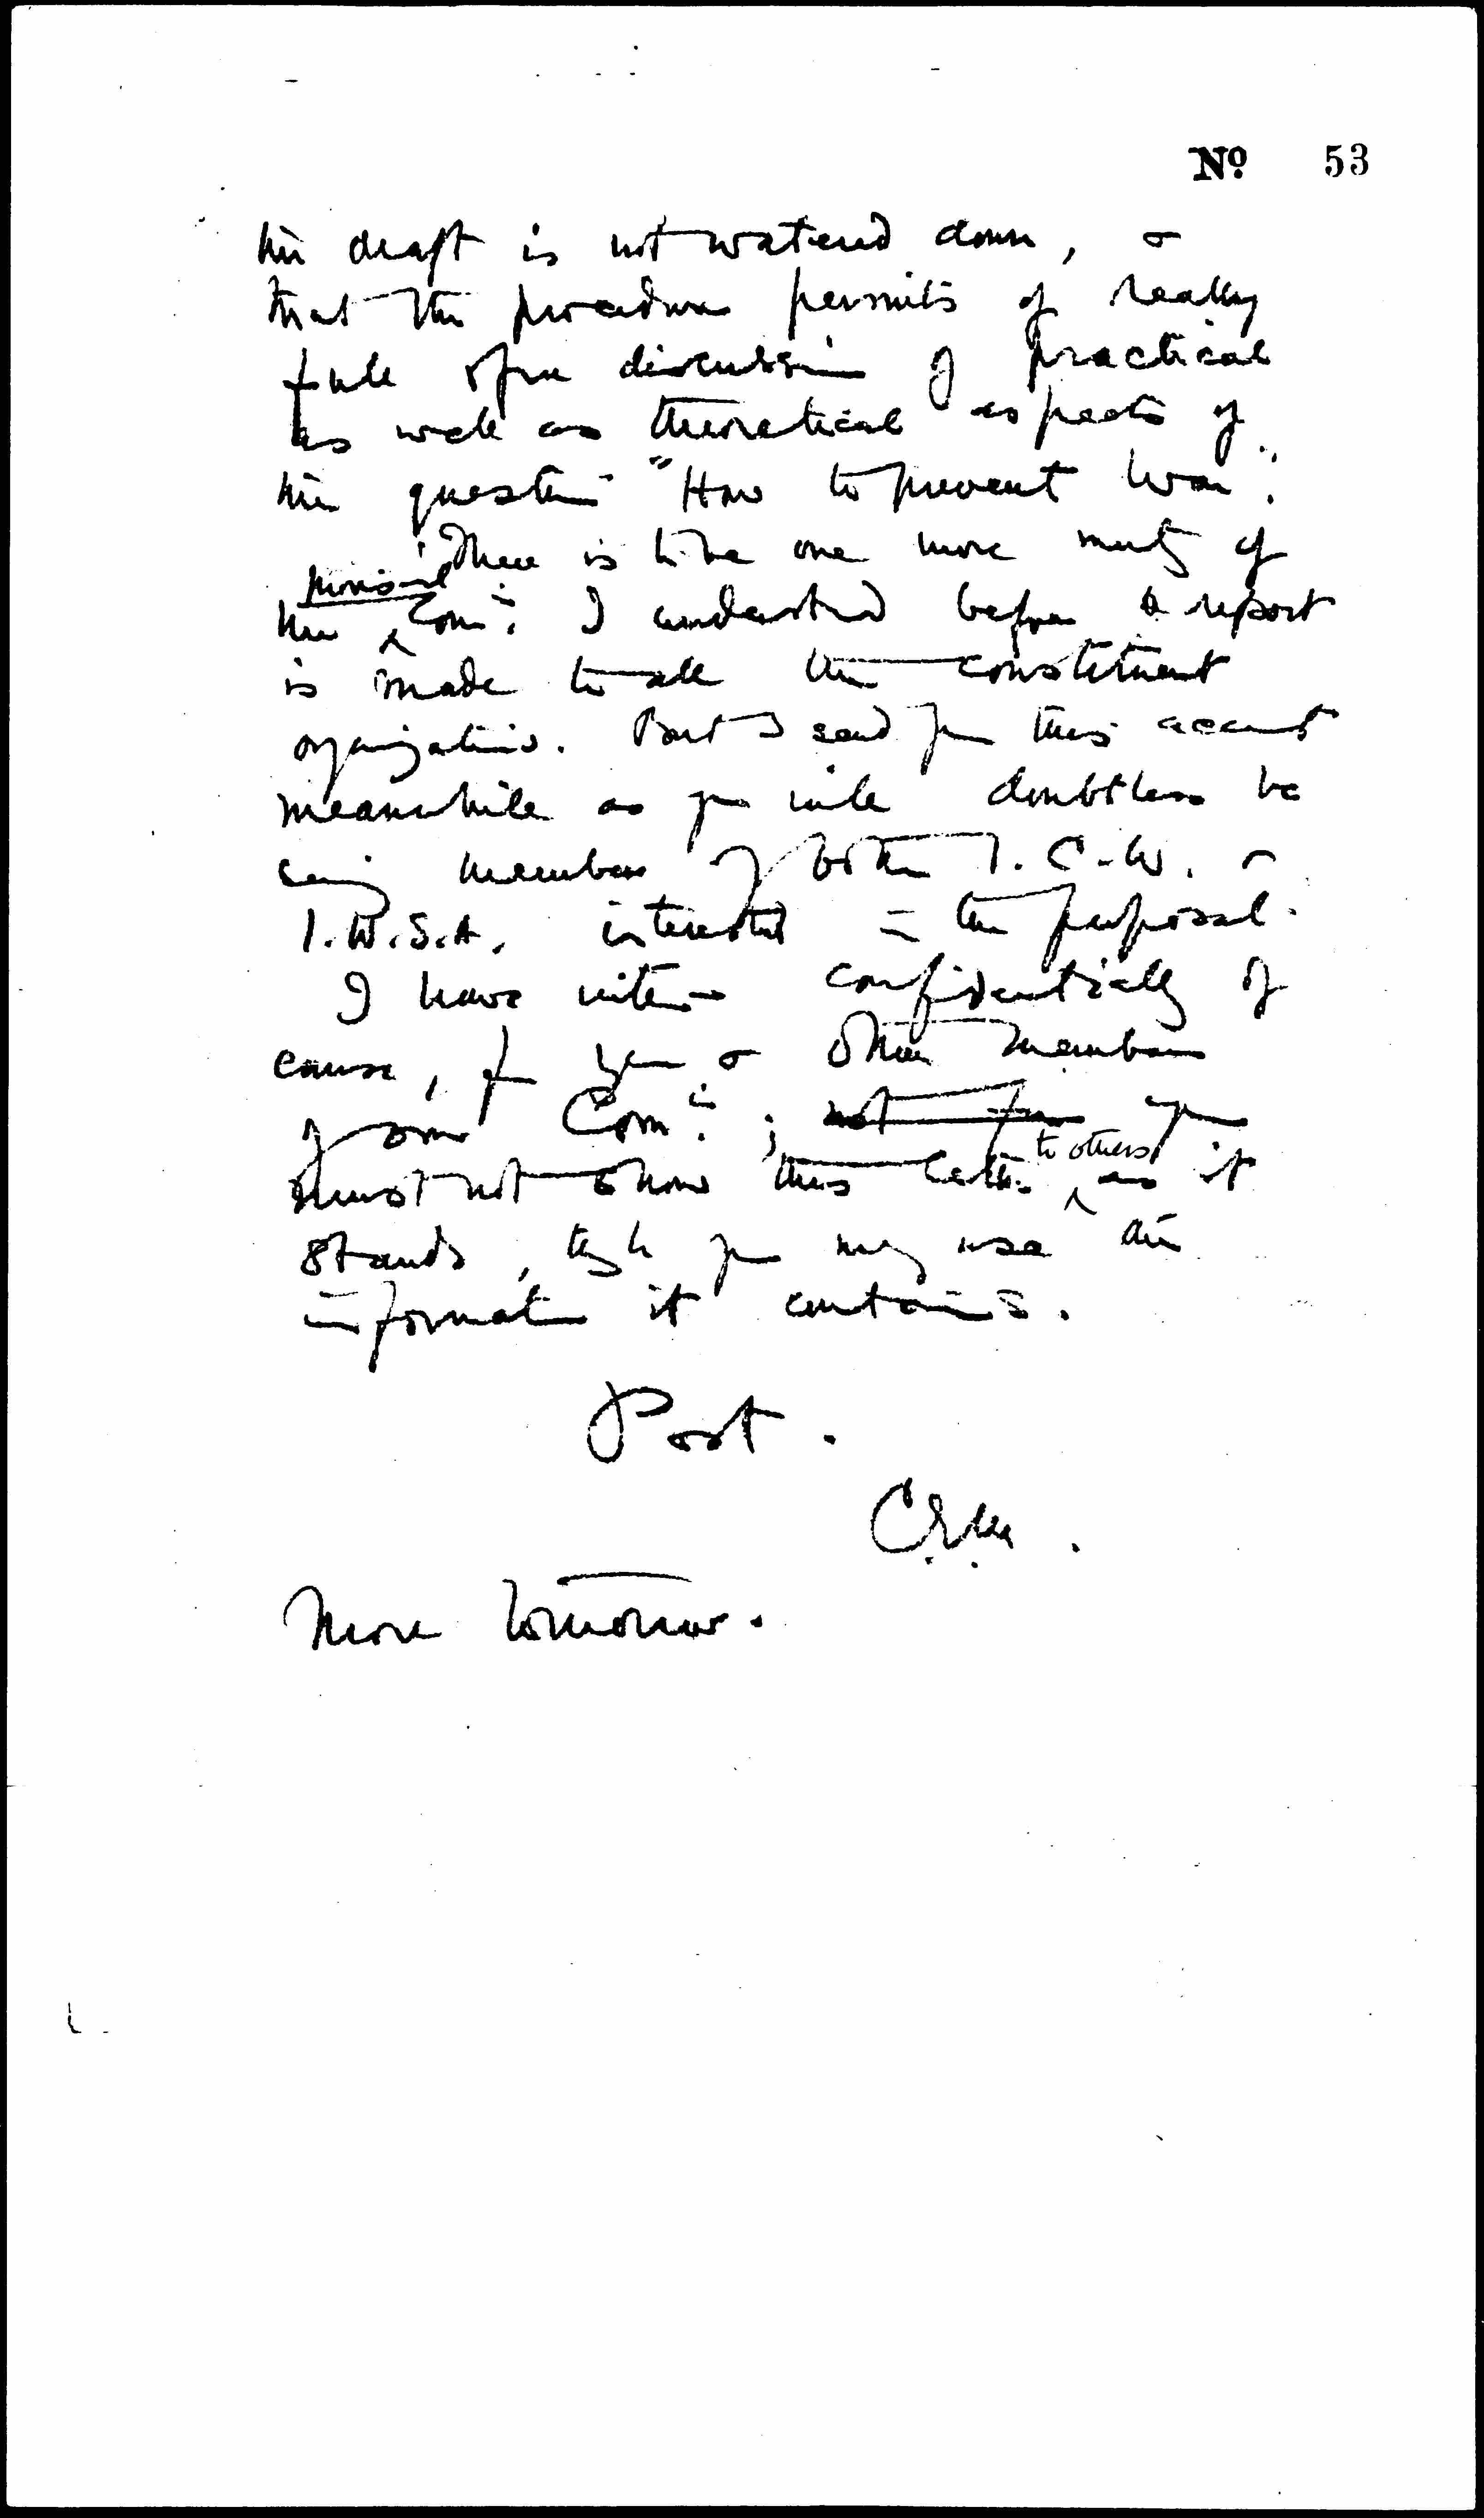 No 53
the draft is not watered down, &
that the procedure permits of really
full & free discussion of practical
as well as theoretical aspects of
the question "How to prevent War".
There is to be one more meeting of
the provisional Comtee I understand before a report
is made to all the constituent
organizations. But I send you this account
meanwhile as you will doubtless be
seeing members of both I.C.W. &
I.W.S.A. interested in the proposal.
I have written confidentially of
course, for you & other members
of our Comtee; not for you
must not show this letter to others as it
stands, tho you may use the
information it contains.
Post.
C.E.M.
More tomorrow.